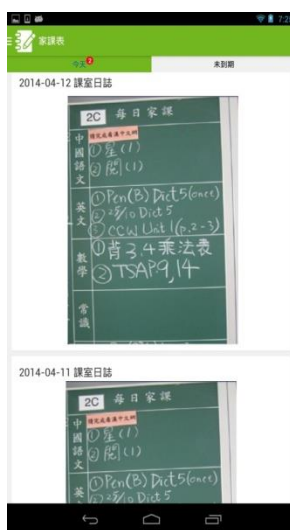 7:2
家課表
今天
未到期
2014-04-12 課室日誌
2C 每日家課
請完成看漢中文網
中國語文
①星(1)
②閱(1)
英文
①Pen(B) Dict5(once)
②25/10 Dict 5
③CCW Unit 1(p.2-3)
數學
①背3,4乘法表
②TSAP.9,14
常識
2014-04-11 課室日誌
2C 每日家課
請完成看漢中文網
中國語文
①星(1)
②閱(1)
英
①Pen(B) Dict5(once)
②25/10 Dict 5